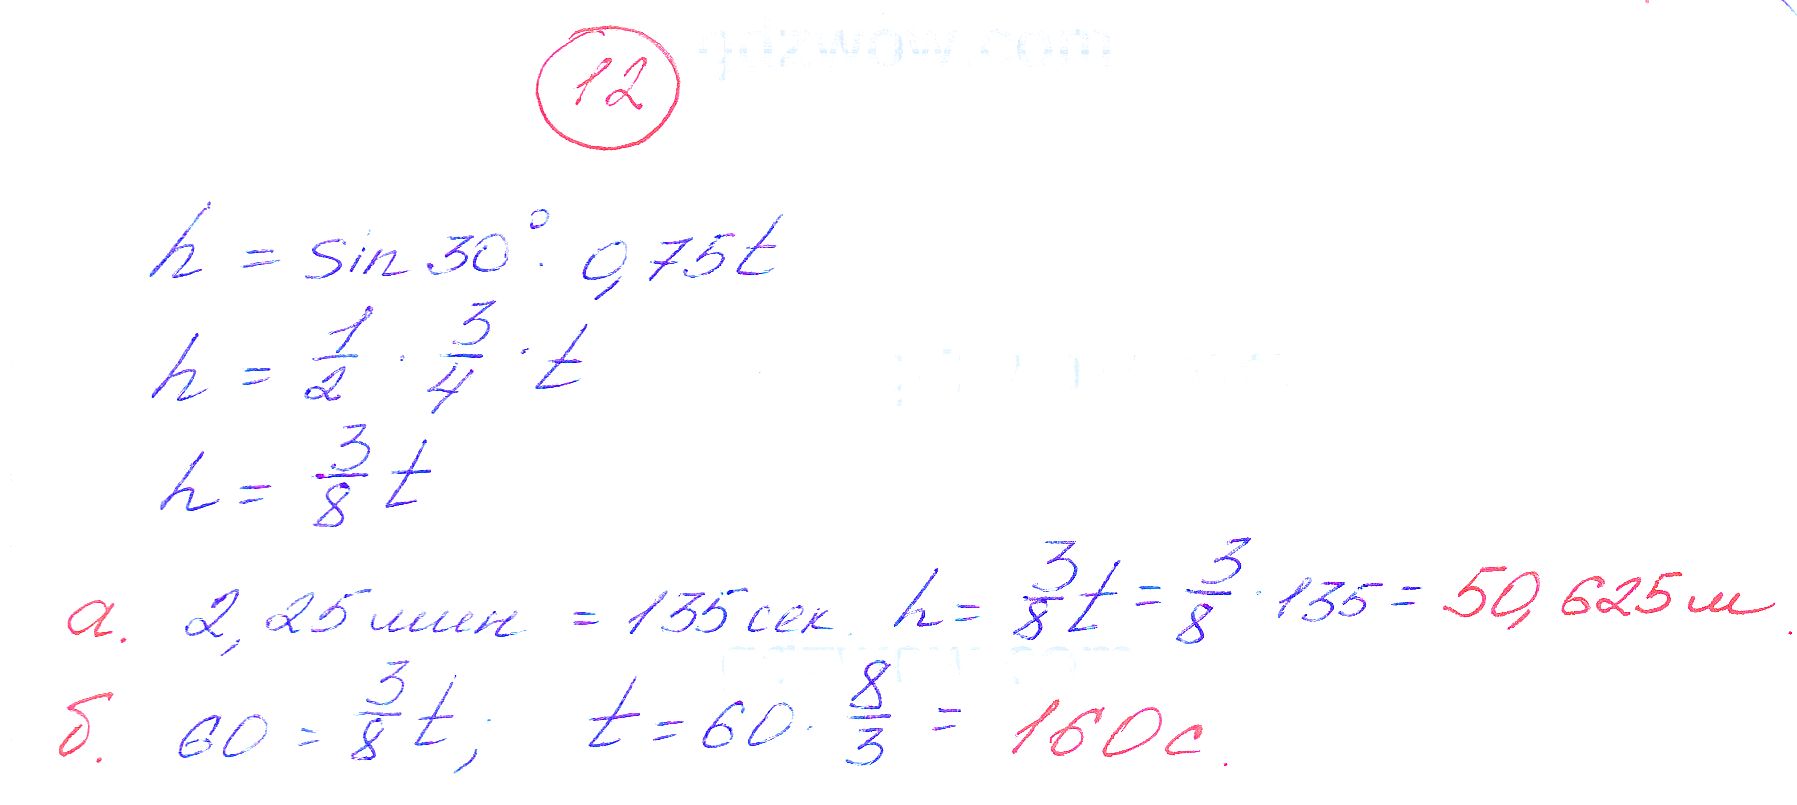 12
h = sin 30° · 0,75t
h = 1/2 · 3/4 · t
h = 3/8 t
а. 2,25 мин = 135 сек. h = 3/8 t = 3/8 · 135 = 50,625 м.
б. 60 = 3/8 t; t = 60 · 8/3 = 160 с.